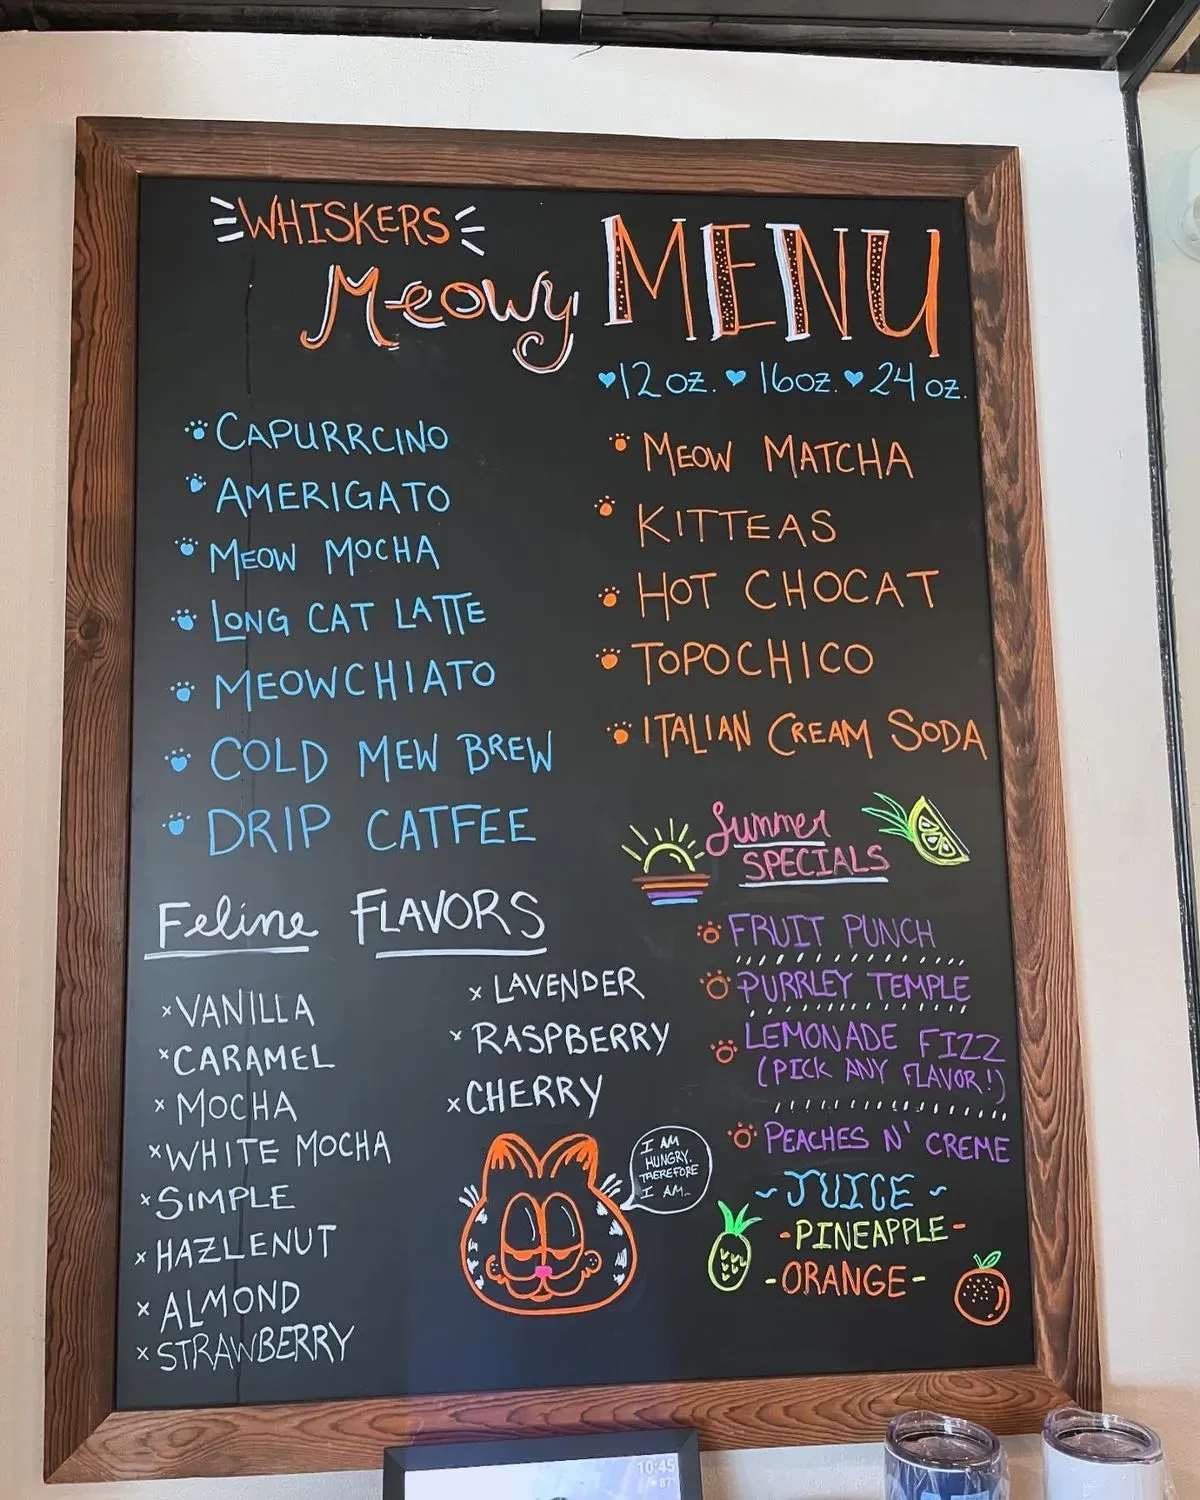 WHISKERS
Meowy MENU
12 oz. 16oz. 24 oz.
CAPURRCINO
AMERIGATO
MEOW MOCHA
LONG CAT LATTE
MEOWCHIATO
COLD MEW BREW
DRIP CATFEE
MEOW MATCHA
KITTEAS
HOT CHOCAT
TOPOCHICO
ITALIAN CREAM SODA
Feline FLAVORS
x VANILLA
x CARAMEL
x MOCHA
x WHITE MOCHA
x SIMPLE
x HAZLENUT
x ALMOND
x STRAWBERRY
x LAVENDER
x RASPBERRY
x CHERRY
I AM
HUNGRY.
THEREFORE
I AM..
Summer
SPECIALS
FRUIT PUNCH
PURRLEY TEMPLE
LEMONADE FIZZ
(PICK ANY FLAVOR!)
PEACHES N' CREME
~JUICE~
-PINEAPPLE-
-ORANGE-
10:45
87°